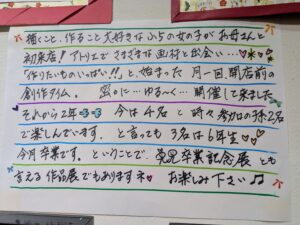 描くこと、作ること大好きな小5の女の子がお母さんと
初来店!アトリエでさまざまな画材と出会い…
「作りたいものいっぱい!!」と、始まった 月一回、開店前の
創作タイム。 密かに…ゆる〜く… 開催して来ました
それから2年 今は4名と時々参加の子ども2名
で楽しんでいます。と言っても3名は6年生
今月卒業です。ということで、発見卒業記念展とも
言える作品展でもあります お楽しみ下さい♫